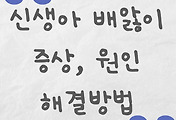 신생아 배앓이
증상, 원인
해결방법